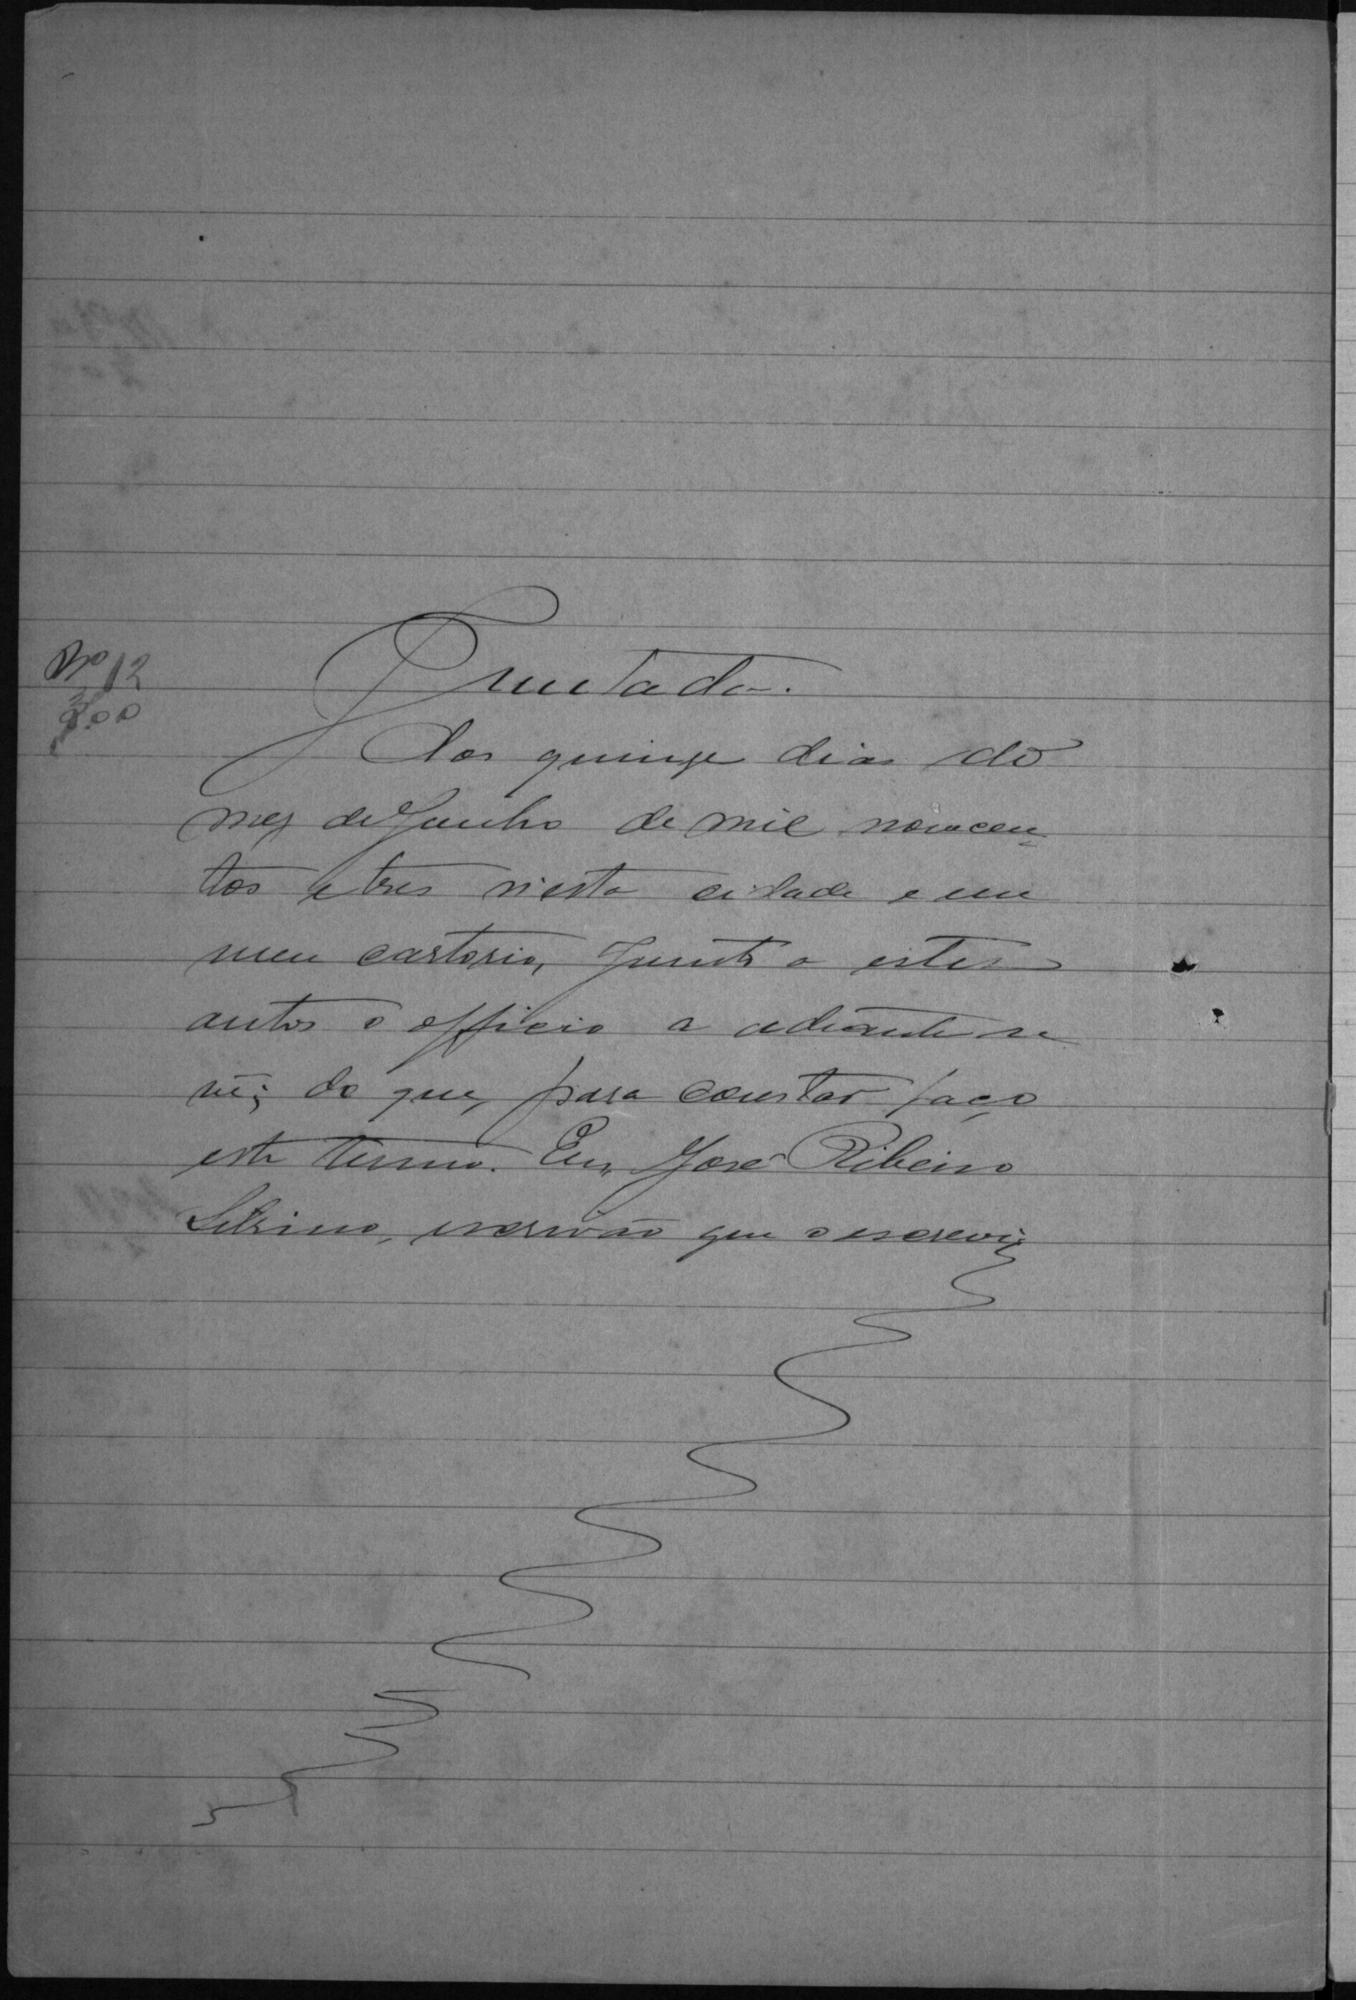 Nº 12
300
Juntada.
Aos quinze dias do
mez de Junho de mil novecen-
tos e tres n'esta cidade e em
meu cartorio, junto a estes
autos o officio a adiante se
vê; do que, para constar faço
este termo. Eu, José Ribeiro
escrivão que o escrevi